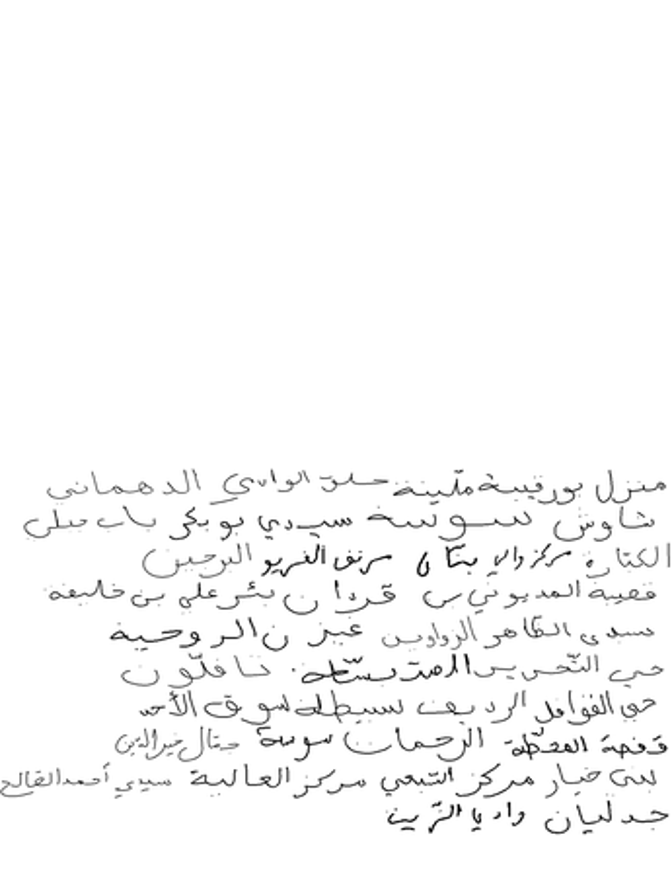 منزل بورقيبة متلينة حلق الوادي الدهماني
شاوش سوسة سيدي بوبكر باب
الكتارة مركز وادي مرنق البرجين
قصيبة المديوني قزان بئر علي بن خليفة
سيدي الظاهر الزوادين الروحية
حي التحرير نافلّون
حي القوافل الرديف سبيطلة سوق الأحد
قفصة المحطة الرجمان سوسة جتال خير الدين
بني خيار مركز الشعبي مركز العالية سيدي أحمد الصالح
جدليان